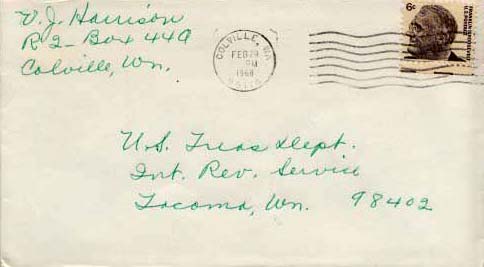 V. J. Harrison
R 2 - Box 449
Colville, Wn.
COLVILLE, WA
FEB 29
PM
1968
6¢
FRANKLIN D. ROOSEVELT
U.S. POSTAGE
U.S. Treas Dept.
Int. Rev. Service
Tacoma, Wn. 98402